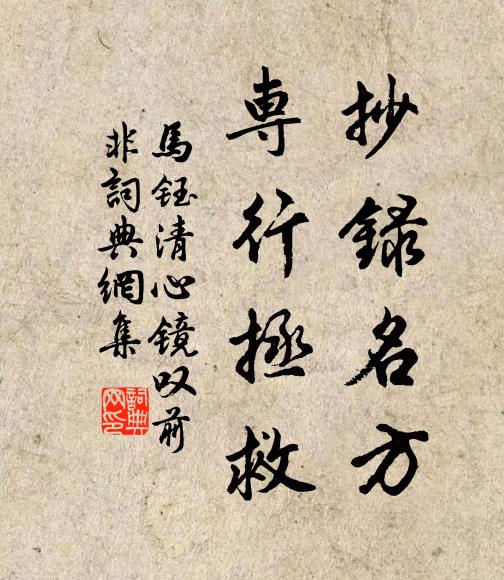 抄録名方
専行拯救
馬鈺清心鏡叹前
非詞典網集
詞典
网印